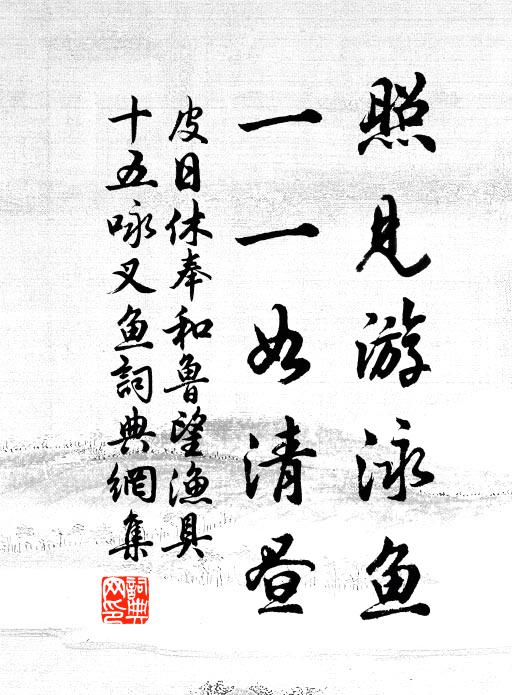 照見游泳鱼
一一如清昼
皮日休奉和魯望漁具
十五咏叉鱼詞典網集
詞典
网印